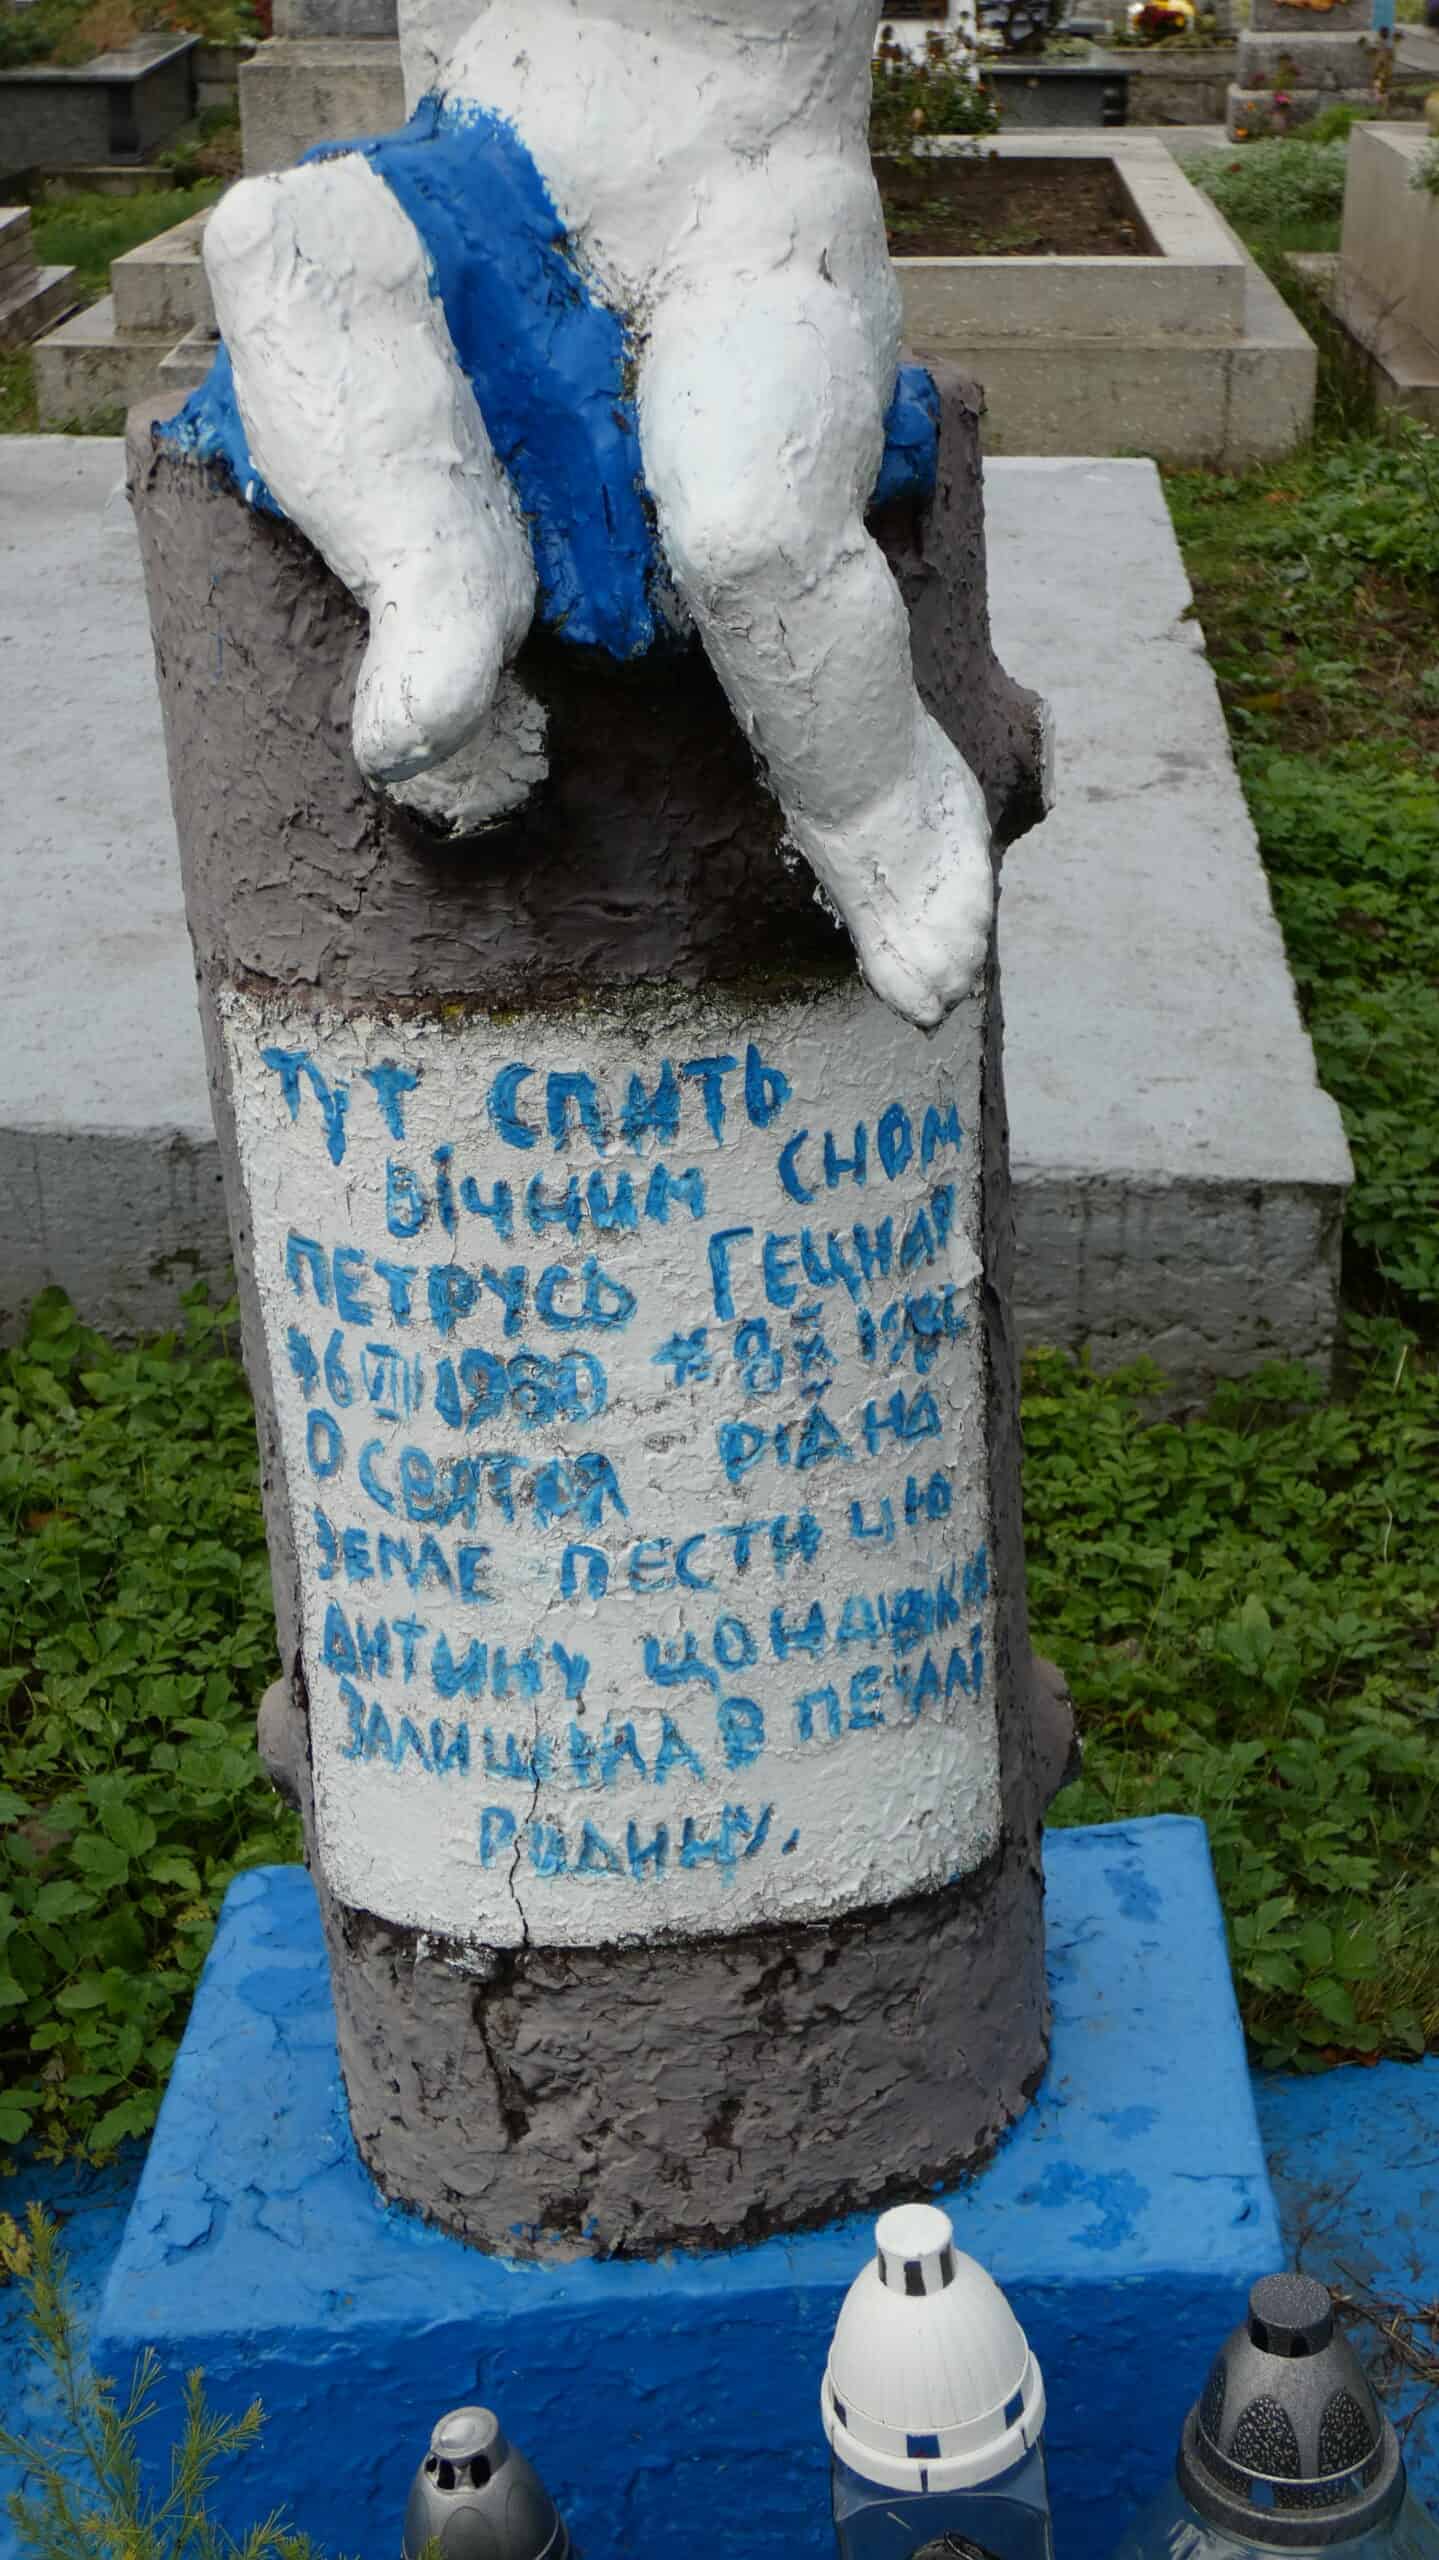 ТУТ СПИТЬ
ВІЧНИМ СНОМ
ПЕТРУСЬ ГЕЦНАР
*6 VIII 1980 *8 X
О СВЯТАЯ РІДНА
ЗЕМЛЕ ПЕСТИ ЦЮ
ДИТИНУ ЩО НАВІКИ
ЗАЛИШИЛА В ПЕЧАЛІ
РОДИНУ.